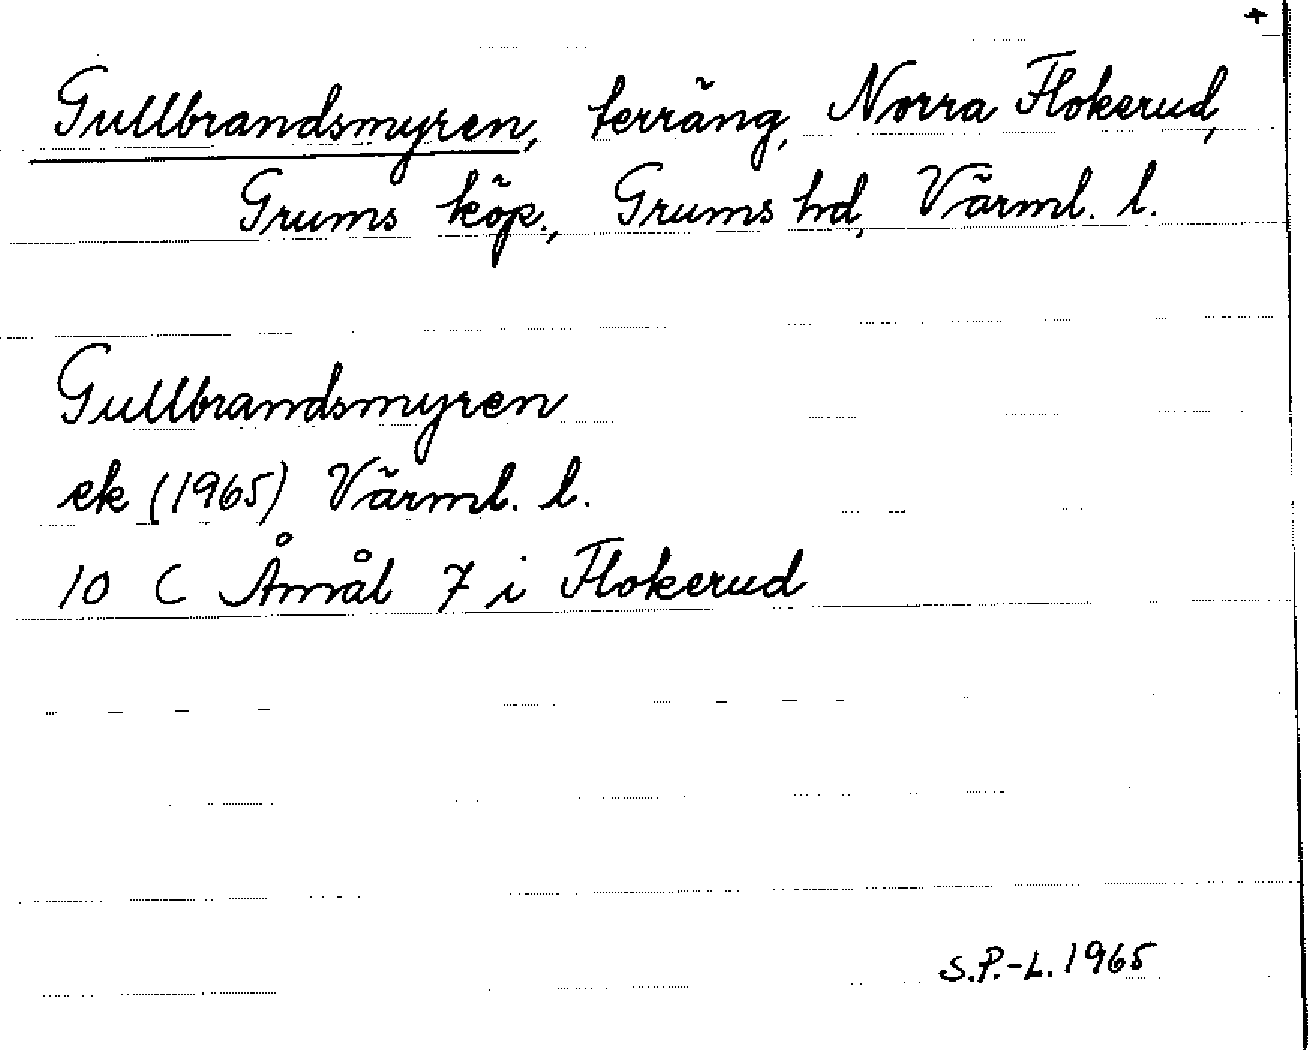 +
Gullbrandsmyren, terräng, Norra Flokerud,
Grums köp., Grums hd, Värml. l.
Gullbrandsmyren
ek (1965) Värml. l.
10 C Åmål 7 i Flokerud
S.P.-L. 1965